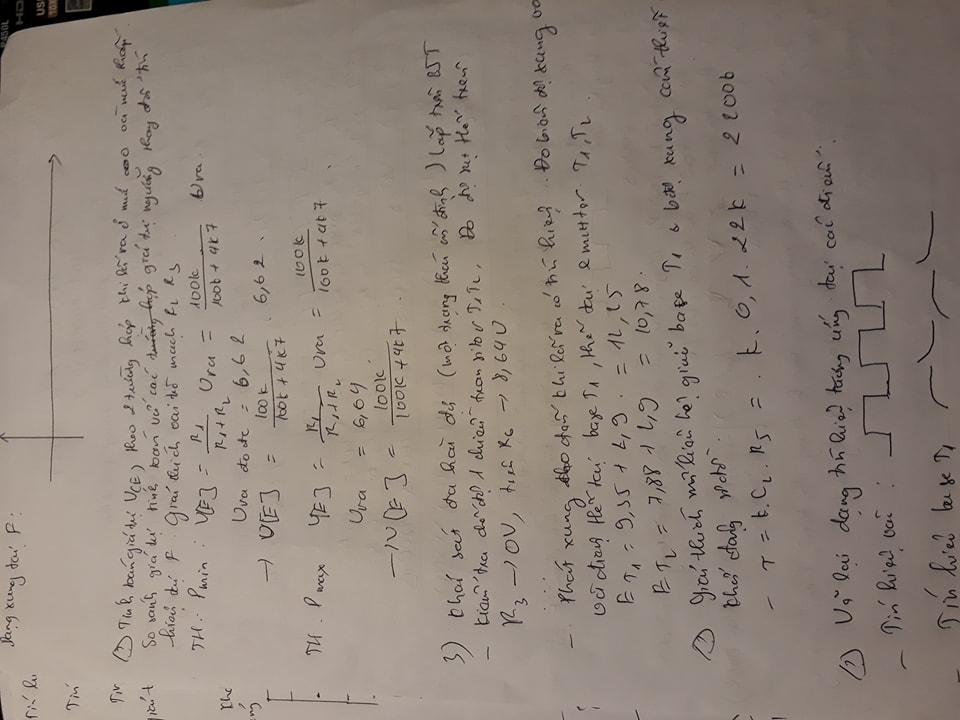 Dạng xung tại F:
Tín
Tín
(?) Tính toán giá trị V[E], theo 2 trường hợp khi lối ra ở mức cao và mức thấp.
So sánh giá trị tính toán với các giá trị ngưỡng thay đổi tín
hiệu từ F. Giải thích vai trò mạch R2 R3
TH. Pmin: V[E] = R1/(R1+R2) Ura = 100k/(100k+4k7) Ura.
Ura đo đc = 6,62
→ U[E] = 100k/(100k+4k7) . 6,62.
TH. Pmax V[E] = R1/(R1+R2) Ura = 100k/(100k+4k7)
Ura = 6,64
→ V[E] = 100k/(100k+4k7).
3) Khảo sát đa hài đợi (một trạng thái ổn định) lắp trên BJT
- Kiểm tra chế độ 1 chiều transitor T1, T2. Đo độ sụt thế trên
R3 → 0V, trên R6 → 8,64V.
...
- Phát xung cho đến khi lối ra có tín hiệu. Đo biên độ xung vào
và điện thế tại base T1, thế tại emitter T1, T2.
ET1 = 9,35 + 2,9. = 12,25
ET2 = 7,88 + 2,9 = 10,78.
(?) Giải thích mối liên hệ giữa base T1 & biên độ xung cần thiết
khởi động sơ đồ.
- τ = k.C2.R5 = . k. 0,1. 22k = 2200k
(?) Vẽ lại dạng tín hiệu tương ứng tại các điểm:
- Tín hiệu vào:
- Tín hiệu base T1